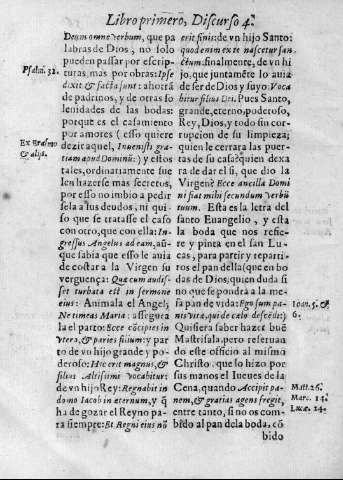 Libro primero, Discurso 4.
Deum omne verbum, que pa
labras de Dios, no solo
pueden passar por escrip-
turas, mas por obras: Ipse
dixit & facta sunt: ahorrà
de padrinos, y de otras so
lenidades de las bodas:
porque es el casamiento
por amores (esso quiere
dezir aquel, Inuenisti gra-
tiam apud Dominũ:) y estos
tales, ordinariamente sue
len hazerse mas secretos,
por esso no imbio a pedir
sela a sus deudos, ni qui
so que se tratasse el caso
con otro, que con ella: In-
gressus Angelus ad eam, aũ-
que sabia que esso le auia
de costar a la Virgen su
verguença: Quæ cum audis-
set turbata est in sermone
eius: Animala el Angel;
Ne timeas Maria: assegura
la el parto: Ecce cõcipies in
vtero, & paries filium: y par
to de vn hijo grande y po-
deroso: Hic erit magnus, &
filius Altissimi vocabitur:
de vn hijo Rey: Regnabit in
domo Iacob in æternum, y q̃
ha de gozar el Reyno pa-
ra siempre: Et Regni eius nõ
Psalm. 32.
Ex Erasmo
& alijs.
erit finis: de vn hijo Santo:
quod enim ex te nascetur san
ctum. finalmente, de vn hi
jo, que juntamẽte lo auia
de ser de Dios y suyo: Voca
bitur filius Dei. Pues Santo,
grande, eterno, poderoso,
Rey, Dios, y todo sin cor-
rupcion de su limpieza;
quien le cerrara las puer-
tas de su casa? quien dexa
ra de dar el si, que dio la
Virgen? Ecce ancilla Domi
ni fiat mihi secundum verbũ
tuum. Esta es la letra del
santo Euangelio, y esta
la boda que nos refie-
re y pinta en el san Lu-
cas, para partir y repartir-
os el pan della (que en bo
das de Dios, quien duda si
no que se pondrà a la me-
sa pan de vida: Ego sum pa-
nis viuus, qui de cælo descẽdi:)
Quisiera saber hazer buẽ
Mastresala, pero reseruan
do este officio al mismo
Christo, que lo hizo por
sus manos el Iueues de la
Cena, quando Accipit pa-
nem, & gratias agens fregit,
entre tanto, si no os com-
bido al pan de la boda, cõ
bido
Ioan. 5. &
6.
Matt. 26.
Marc. 14.
Lucæ. 24.